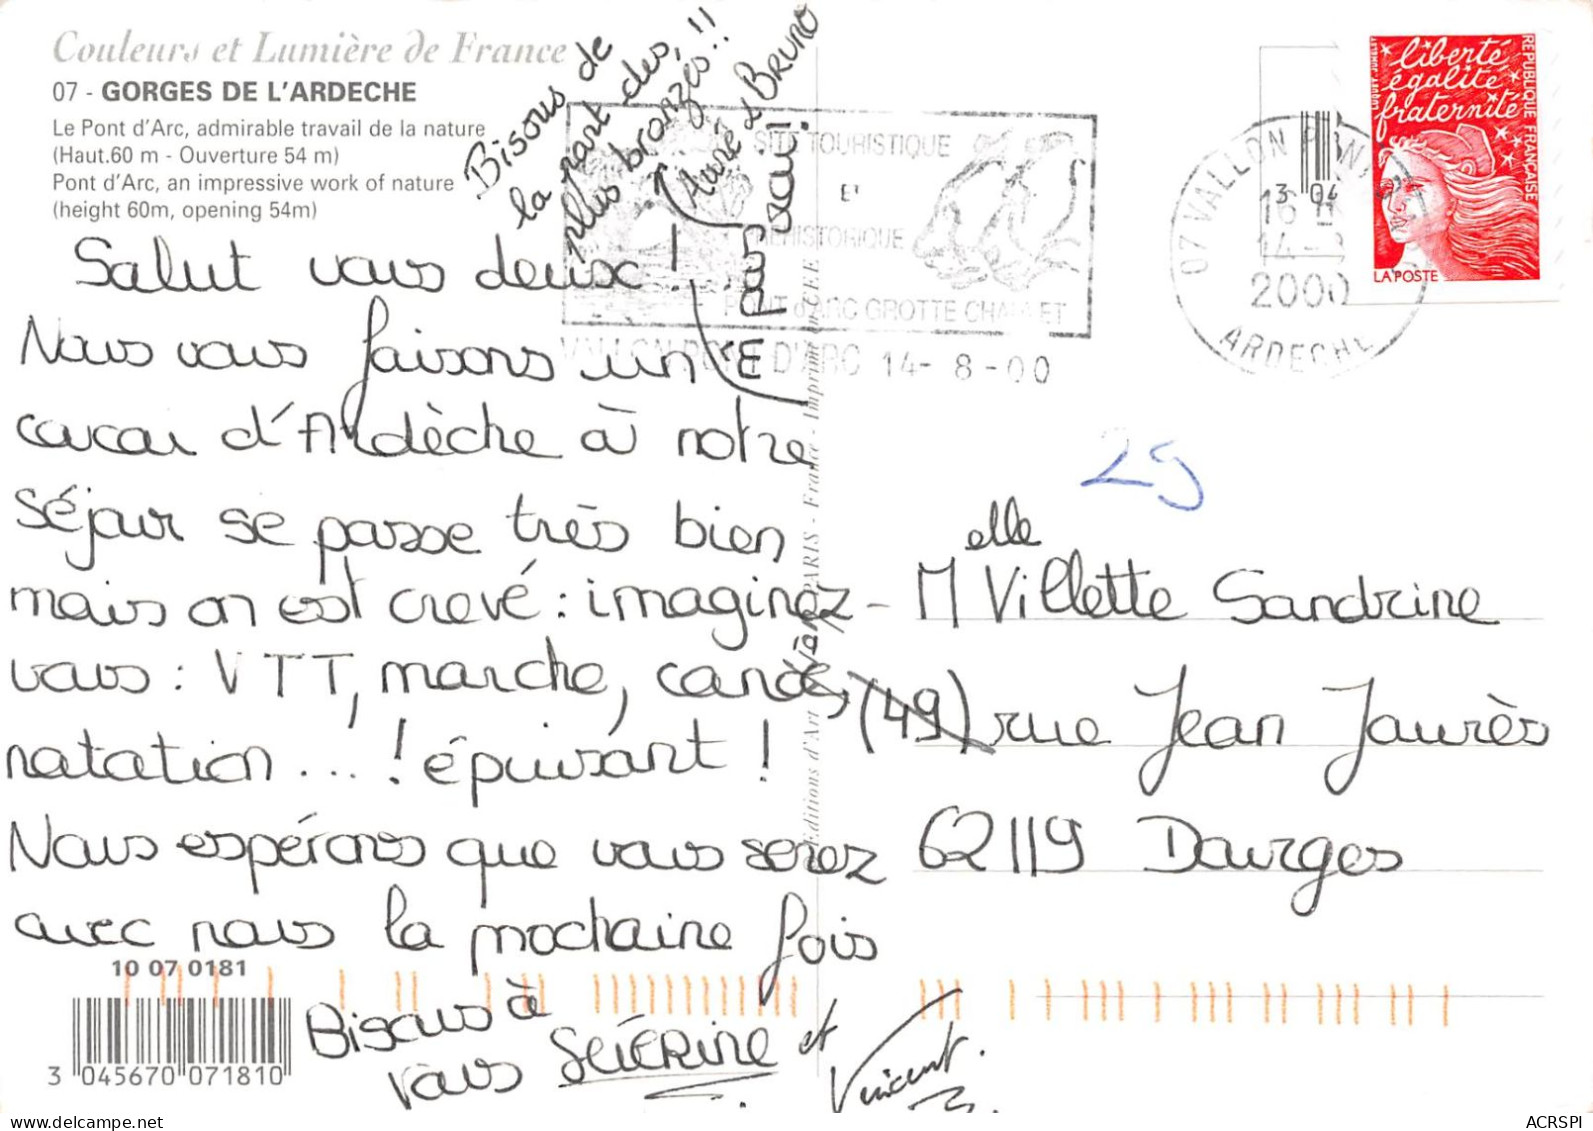 Couleurs et Lumière de France
07 - GORGES DE L'ARDECHE
Le Pont d'Arc, admirable travail de la nature
(Haut.60 m - Ouverture 54 m)
Pont d'Arc, an impressive work of nature
(height 60m, opening 54m)
Bisous de
la part des
plus bronzés!!
(Auré & BRUNO
PAS vrai!
Salut vous deux!
Nous vous faisons un
coucou d'Ardèche où notre
séjour se passe très bien
mais on est crevé : imaginez-
vous : VTT, marche, canoë,
natation...! épuisant!
Nous espérons que vous serez
avec nous la prochaine fois
Bisous à
vous SÉVERINE et
Vincent.
10 07 0181
3 045670 071810
Editions d'Art
PARIS - France - Imprimé en CEE
SITE TOURISTIQUE
ET
PREHISTORIQUE
PONT d'ARC GROTTE CHAUVET
VALLON PONT D'ARC 14-8-00
07 VALLON PONT
16 H
14-
2000
ARDECHE
3 04
liberté
égalité
fraternité
REPUBLIQUE FRANÇAISE
LUQUET, JUMELET
LA POSTE
29
Melle Villette Sandrine
(49) rue Jean Jaurès
62119 Dourges
ACRSPI